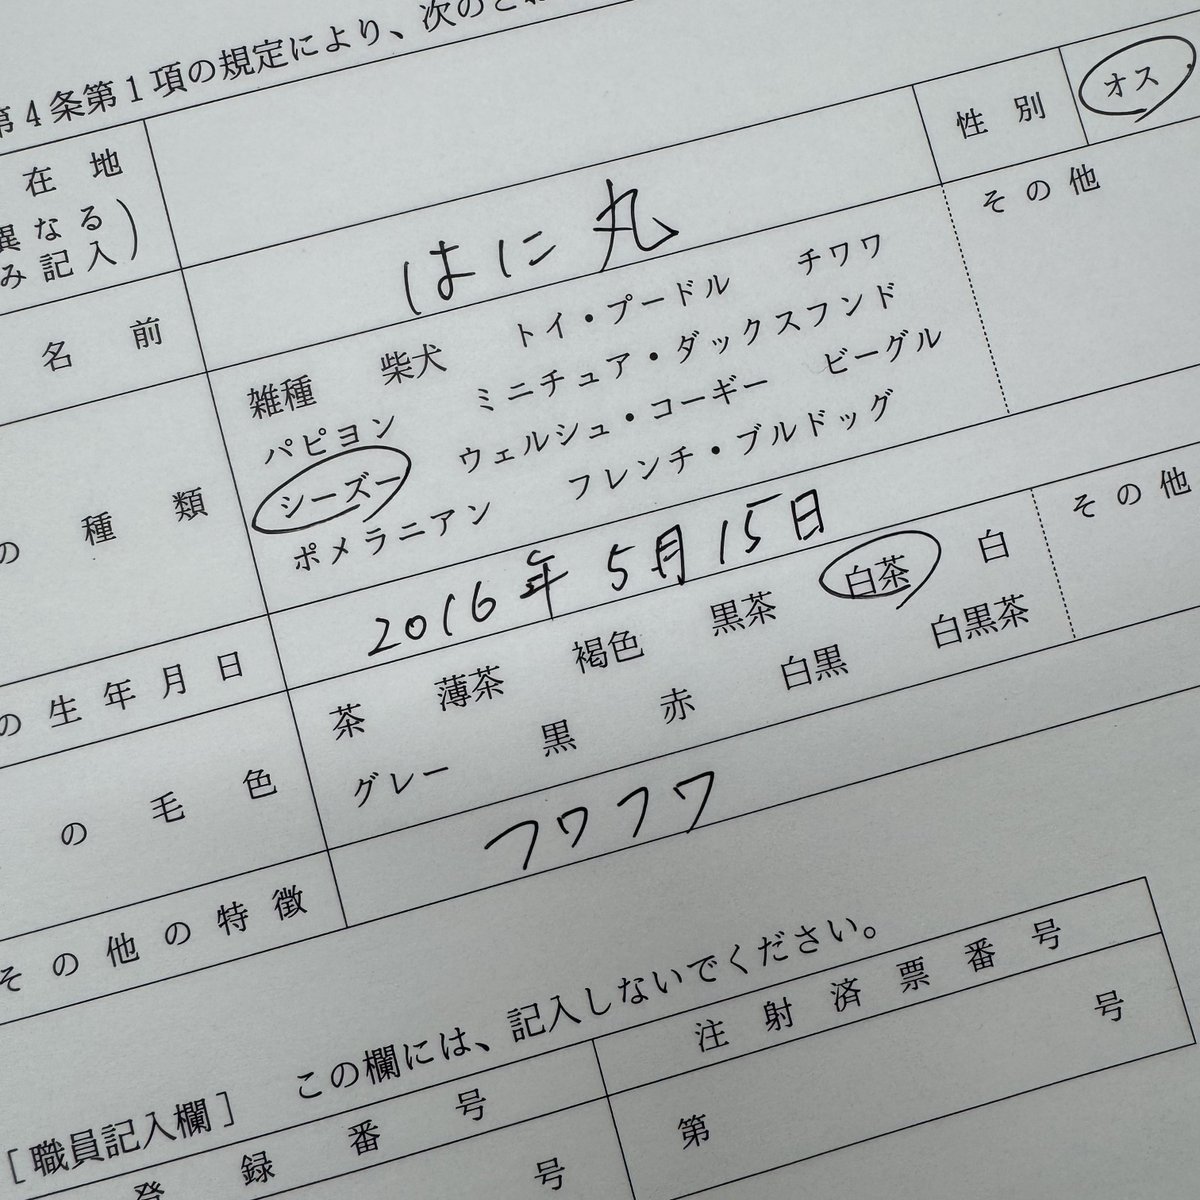 第4条第1項の規定により、次のとお
在地
異なる
み記入)
性別 オス
名前 はに丸
の種類
雑種 柴犬 トイ・プードル チワワ
パピヨン ミニチュア・ダックスフンド
シーズー ウェルシュ・コーギー ビーグル
ポメラニアン フレンチ・ブルドッグ
その他
の生年月日 2016年5月15日
の毛色
茶 薄茶 褐色 黒茶 白茶 白
グレー 黒 赤 白黒 白黒茶
その他
その他の特徴 フワフワ
[職員記入欄] この欄には、記入しないでください。
登録番号 注射済票番号
号 第 号